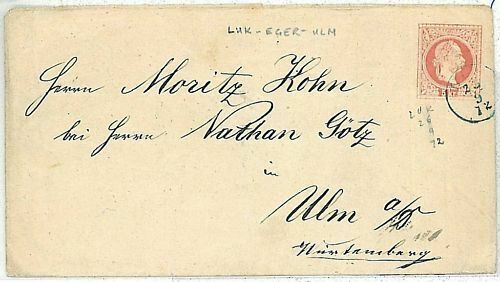 LUK-EGER-ULM
Herrn Moritz Kohn
bei Herrn Nathan Götz
in
Ulm a/D
Würtemberg
LUK
26
9
72